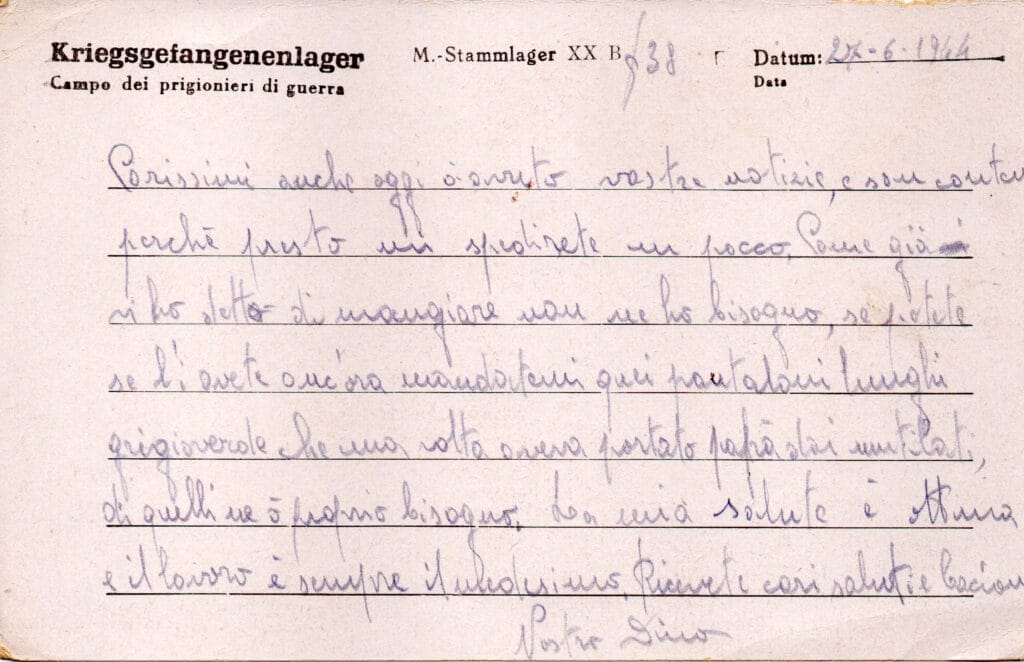 Kriegsgefangenenlager M.-Stammlager XX B 38 Datum: 27-6-1944
Campo dei prigionieri di guerra Data
Carissimi anche oggi ò avuto vostre notizie, e son conten
perchè presto mi spedirete un pacco. Come già
vi ho detto di mangiare non ne ho bisogno, se potete
se li avete ancora mandatemi quei pantaloni lunghi
grigioverde che una volta aveva portato papà dai mutilati,
di quelli ne ò proprio bisogno. La mia salute è ottima
e il lavoro è sempre il medesimo. Ricevete cari saluti e bacioni
Vostro Dino